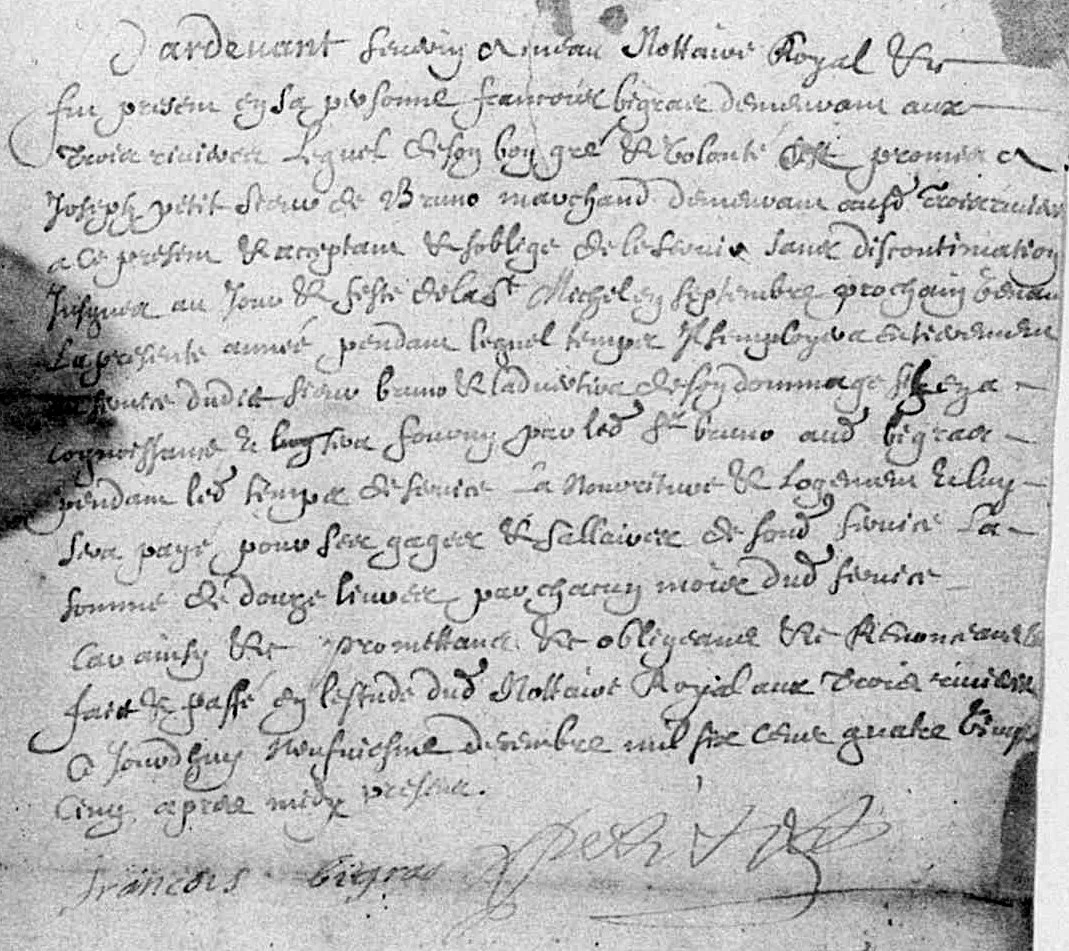 Pardevant Severin Ameau Nottaire Royal &c
fut present en sa personne francois bigras demeurant aux
trois rivieres Lequel de son bon gré & volonté sest promis a
Joseph petit sieur de Bruno marchand demeurant ausd trois rivieres
a ce present & acceptant & soblige de le servir sans discontinuation
Jusques au Jour & feste de la St Michel en septembre prochain venant
La presente année pendant lequel temps Il semployera entierement
service dudit sieur bruno & ladvertira de son dommage sil en a
cognoissance & sera fourny par led Sr bruno aud bigras
pendant led temps de service La Nourriture & Logement & luy
sera payé pour ses gages & sallaires de sond service La
somme de douze livres par chacun mois dud service
Car ainsy &c promettant &c obligeant &c Renonceant &c
fait & passé en lestude dud Nottaire Royal aux trois rivieres
ce Jourdhuy Neufviesme desembre mil six cent quatre vingt
Cinq apres midy presens.
francois bigras petit